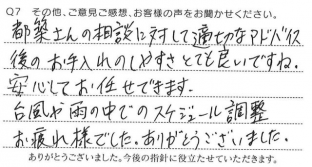 Q7 その他、ご意見ご感想、お客様の声をお聞かせください。
都築さんの相談に対して適切なアドバイス
後のお手入れのしやすさとても良いですね。
安心してお任せできます。
台風や雨の中でのスケジュール調整
お疲れ様でした。ありがとうございました。
ありがとうございました。今後の指針に役立たせていただきます。